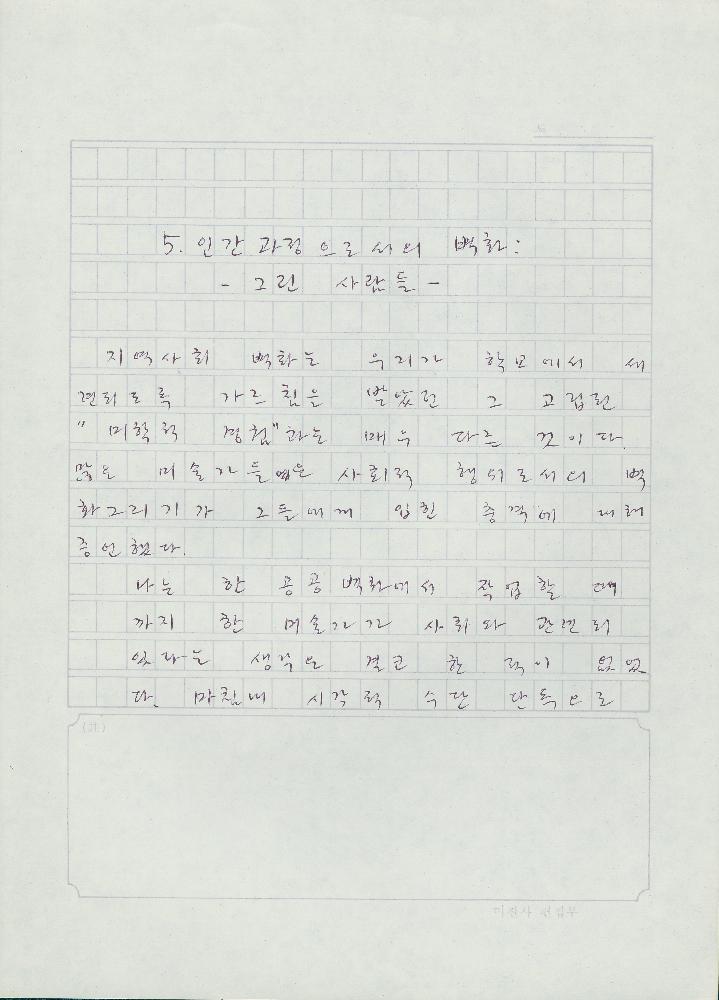 5. 인간 과정으로서의 벽화:
- 그린 사람들 -
지역사회 벽화는 우리가 학교에서 세
련되도록 가르침을 받았던 그 고립된
"미학적 경험"과는 매우 다른 것이다.
많은 미술가들은 사회적 행위로서의 벽
화그리기가 그들에게 입힌 충격에 대해
증언했다.
나는 한 공공벽화에서 작업할 때
까지 한 미술가가 사회와 관련되
있다는 생각은 결코 한 적이 없었
다. 마침내 시각적 수단 단독으로
(注)
미진사 편집부